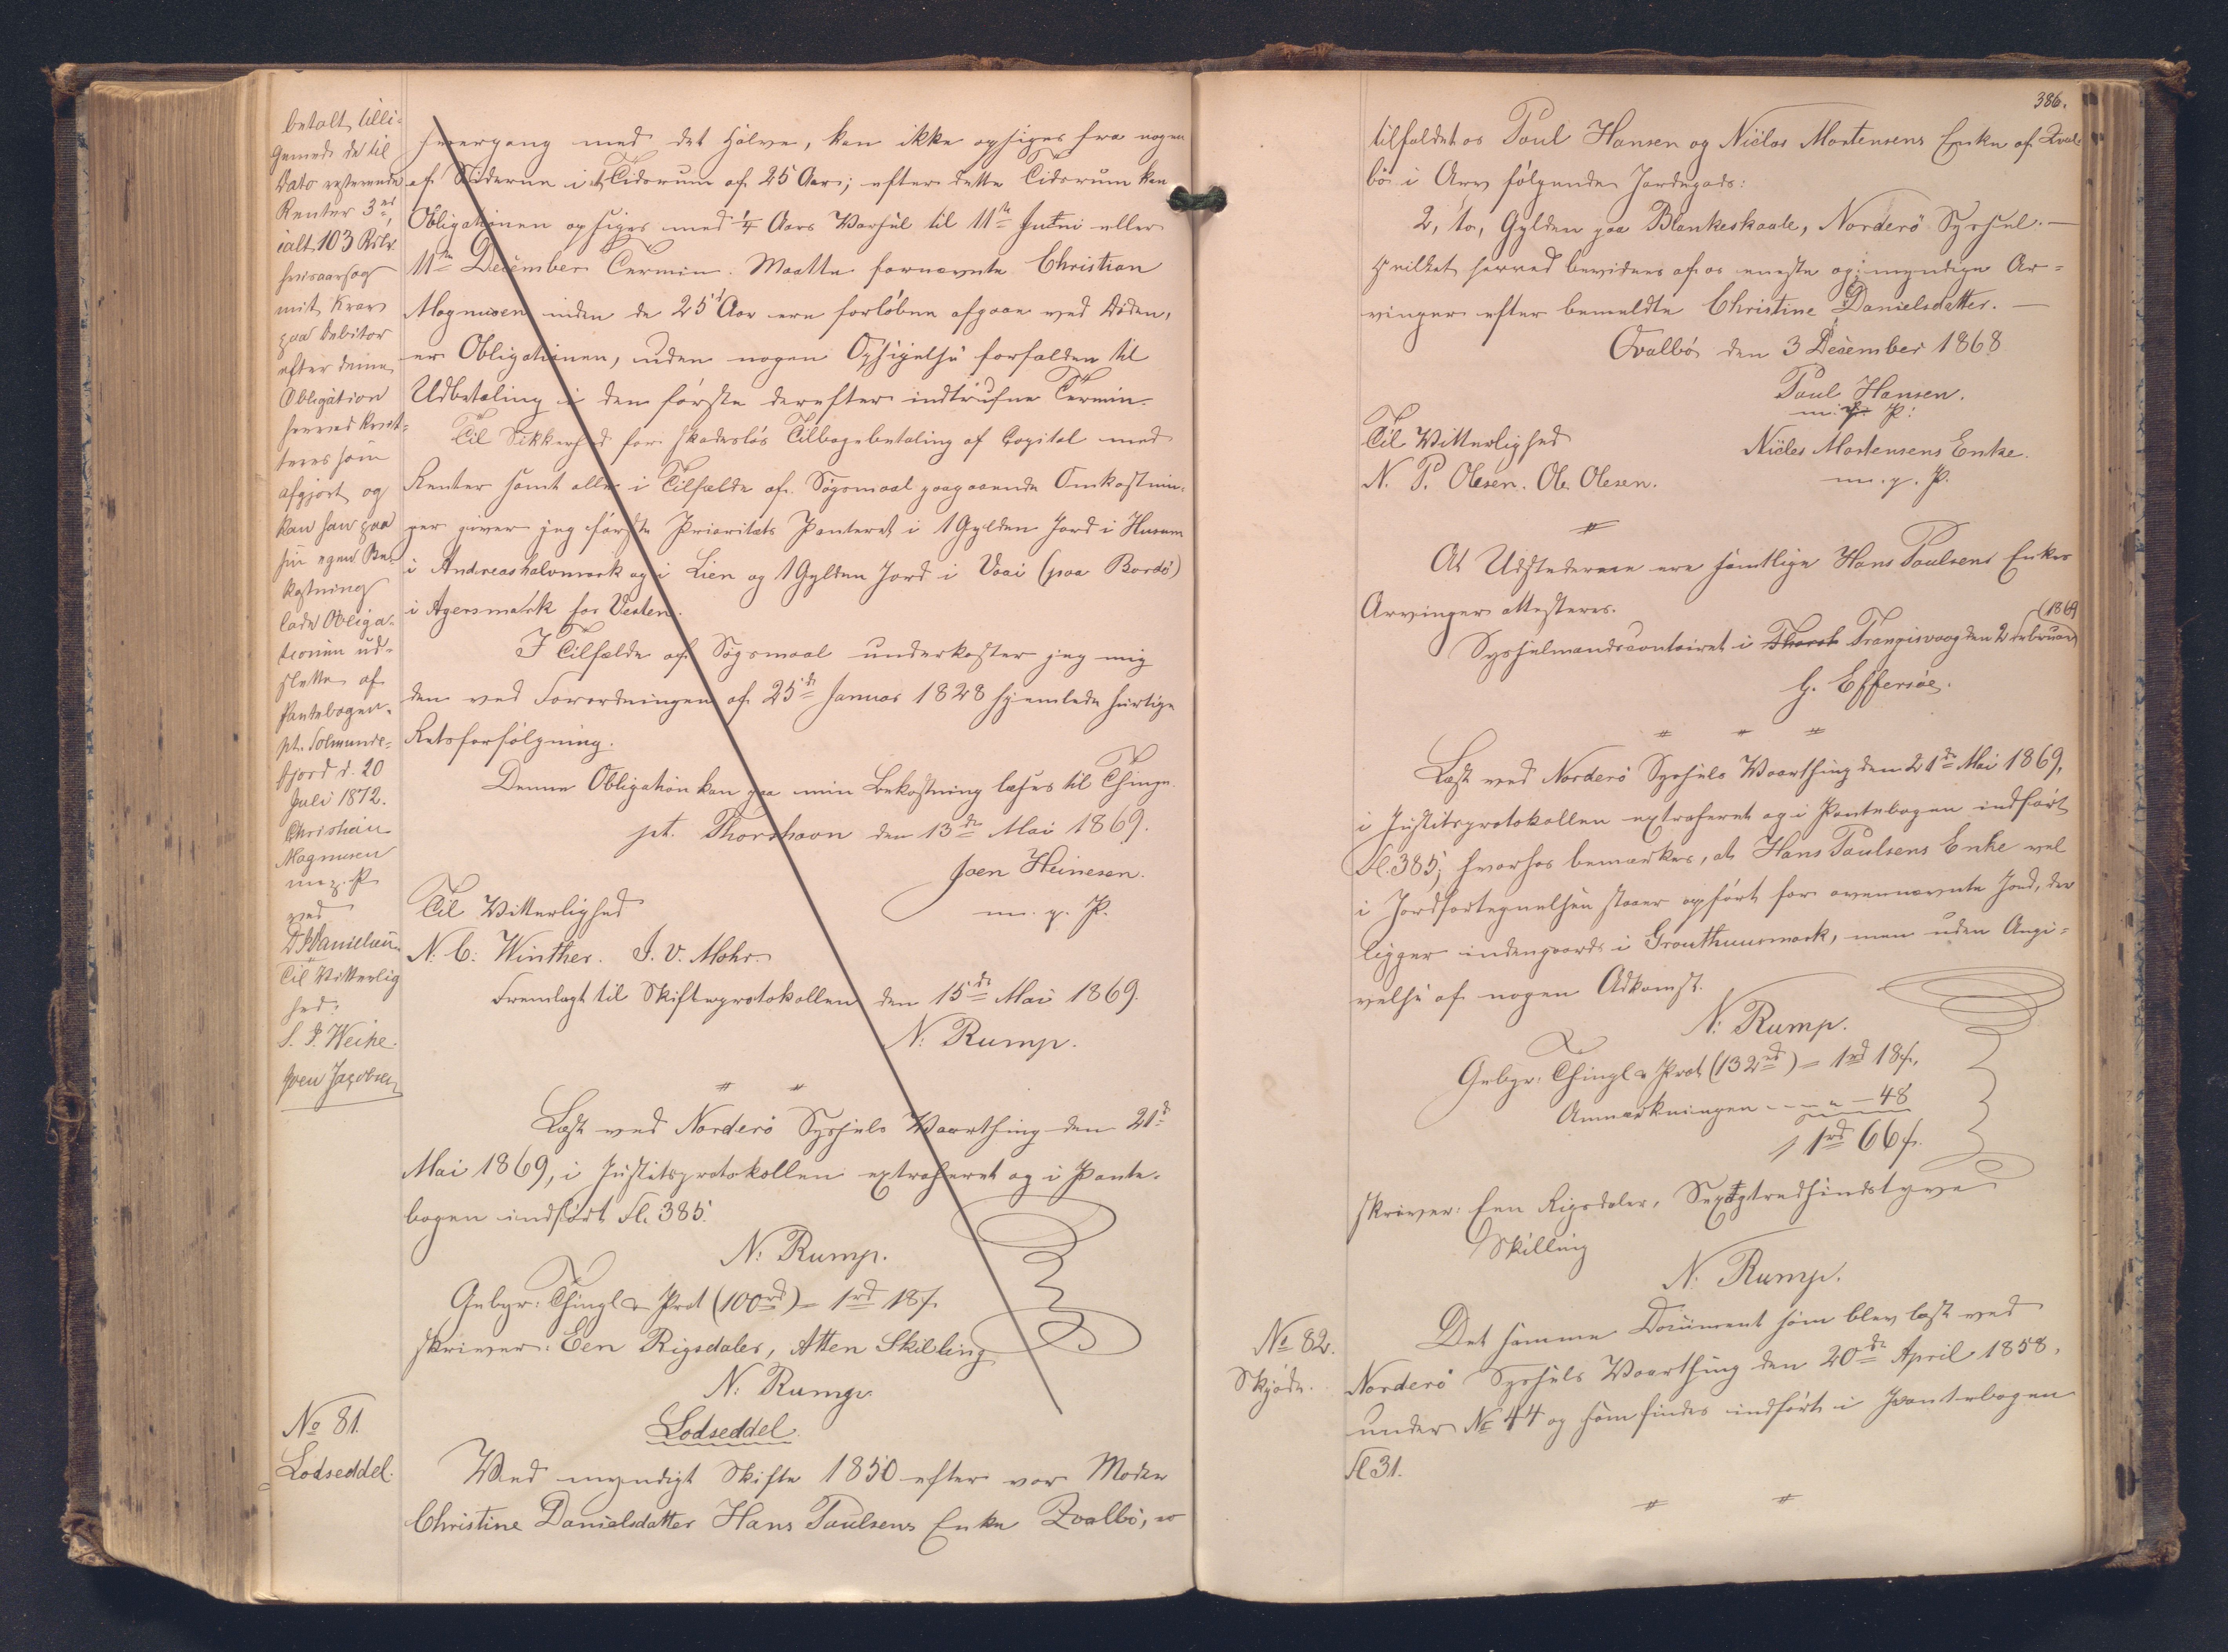 betalt, tilli-
gemed de til
Dato resterende
Renter 3 rd,
ialt 103 Rdlr
hvisaarsag
mit Krav
paa Debitor
efter denne
Obligation
herved kvit-
teres som
afgjort og
kan han paa
sin egen Be-
kostning
lade Obliga-
tionen ud-
slette af
Pantebogen.
pt. Solmunde-
fjord d. 20
Juli 1872.
Christian
Magnusen
m. p. P.
ved
D. Danielsen.
Til Vitterlig
hed:
S. P. Weihe.
Joen Jacobsen
hvergang med det halve, kan ikke opsiges fra nogen
af Siderne i et Tidsrum af 25 Aar; efter dette Tidsrum kan
Obligationen opsiges med ¼ Aars Varsel til 11te Juni eller
11te December Termin. Maatte fornævnte Christian
Magnusen inden de 25 Aar ere forløbne afgaae ved Døden,
er Obligationen, uden nogen Opsigelse forfalden til
Udbetaling i den første derefter indtrufne Termin.
Til Sikkerhed for skadesløs Tilbagebetaling af Capital med
Renter samt alle i Tilfælde af Søgsmaal paagaaende Omkostnin-
ger giver jeg første Prioritets Panteret i 1 Gylden Jord i Husum
i Andreashalvmark og i Lien og 1 Gylden Jord i Vaai (paa Bordø)
i Agersmark for Vesten.
I Tilfælde af Søgsmaal underkaster jeg mig
den ved Forordningen af 25de Januar 1828 hjemlede hurtige
Retsforfølgning.
Denne Obligation kan paa min Bekostning læses til Thinge.
pt. Thorshavn den 13de Mai 1869.
Joen Heinesen.
m. p. P.
Til Vitterlighed
N. C: Winther. J. V. Mohr.
Fremlagt til Skifteprotokollen den 15de Mai 1869.
N: Rump.
Læst ved Norderø Syssels Vaarthing den 21d
Mai 1869, i Justitsprotokollen extraheret og i Pante-
bogen indført Fl. 385.
N: Rump.
Gebyr: Thingl & Prot (100rd) = 1rd 18 s.
skriver: Een Rigsdaler, Atten Skilling
N: Rump.
No 81.
Lodseddel.
Lodseddel.
Ved myndigt Skifte 1850 efter vor Moder
Christine Danielsdatter Hans Paulsens Enke Qvalbø, er
386.
tilfaldet os Poul Hansen og Niclas Mortensens Enke af Qval-
bø i Arv følgende Jordegods:
2, to, Gylden paa Blankeskaale, Norderø Syssel. —
Hvilket herved bevidnes af os eneste og myndige Ar-
vinger efter bemeldte Christine Danielsdatter. —
Qvalbø den 3 December 1868
Poul Hansen.
m. p. P:
Til Vitterlighed
Niclas Mortensens Enke.
N. P. Olesen. Ole Olesen.
m. p. P.
At Udstederne ere samtlige Hans Poulsens Enkes
Arvinger attesteres.
Sysselmandscontoiret i Thorsh Trangisvaag den 2 Februar
(1869
G. Effersøe.
Læst ved Norderø Syssels Vaarthing den 21de Mai 1869,
i Justitsprotokollen extraheret og i Pantebogen indført
Fl. 385; hvorhos bemærkes, at Hans Paulsens Enke vel
i Jordfortegnelsen staaer opført for ovennævnte Jord, der
ligger indengaards i Grouthuusmark, men uden Angi-
velse af nogen Adkomst.
N: Rump.
Gebyr: Thingl & Prot (132rd) = 1rd 18 s.
Anmærkningen - - - " — 48
1rd 66 s.
skriver: Een Rigsdaler, Sexogtredsindstyve
Skilling
N. Rump.
No 82.
Skjøde.
Det samme Document som blev læst ved
Norderø Syssels Vaarthing den 20de April 1858,
under No 44 og som findes indført i Pantebogen
Fl 31.